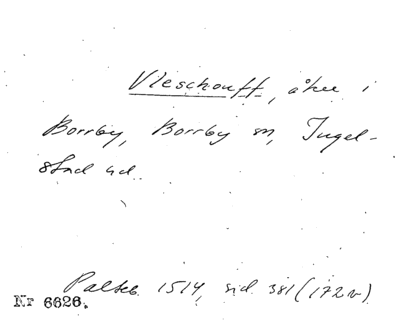 Vleschouff, åker i
Borrby, Borrby sn, Ingel-
stad hd.
Palteb. 1514, sid. 381 (172 v)
Nr 6626.